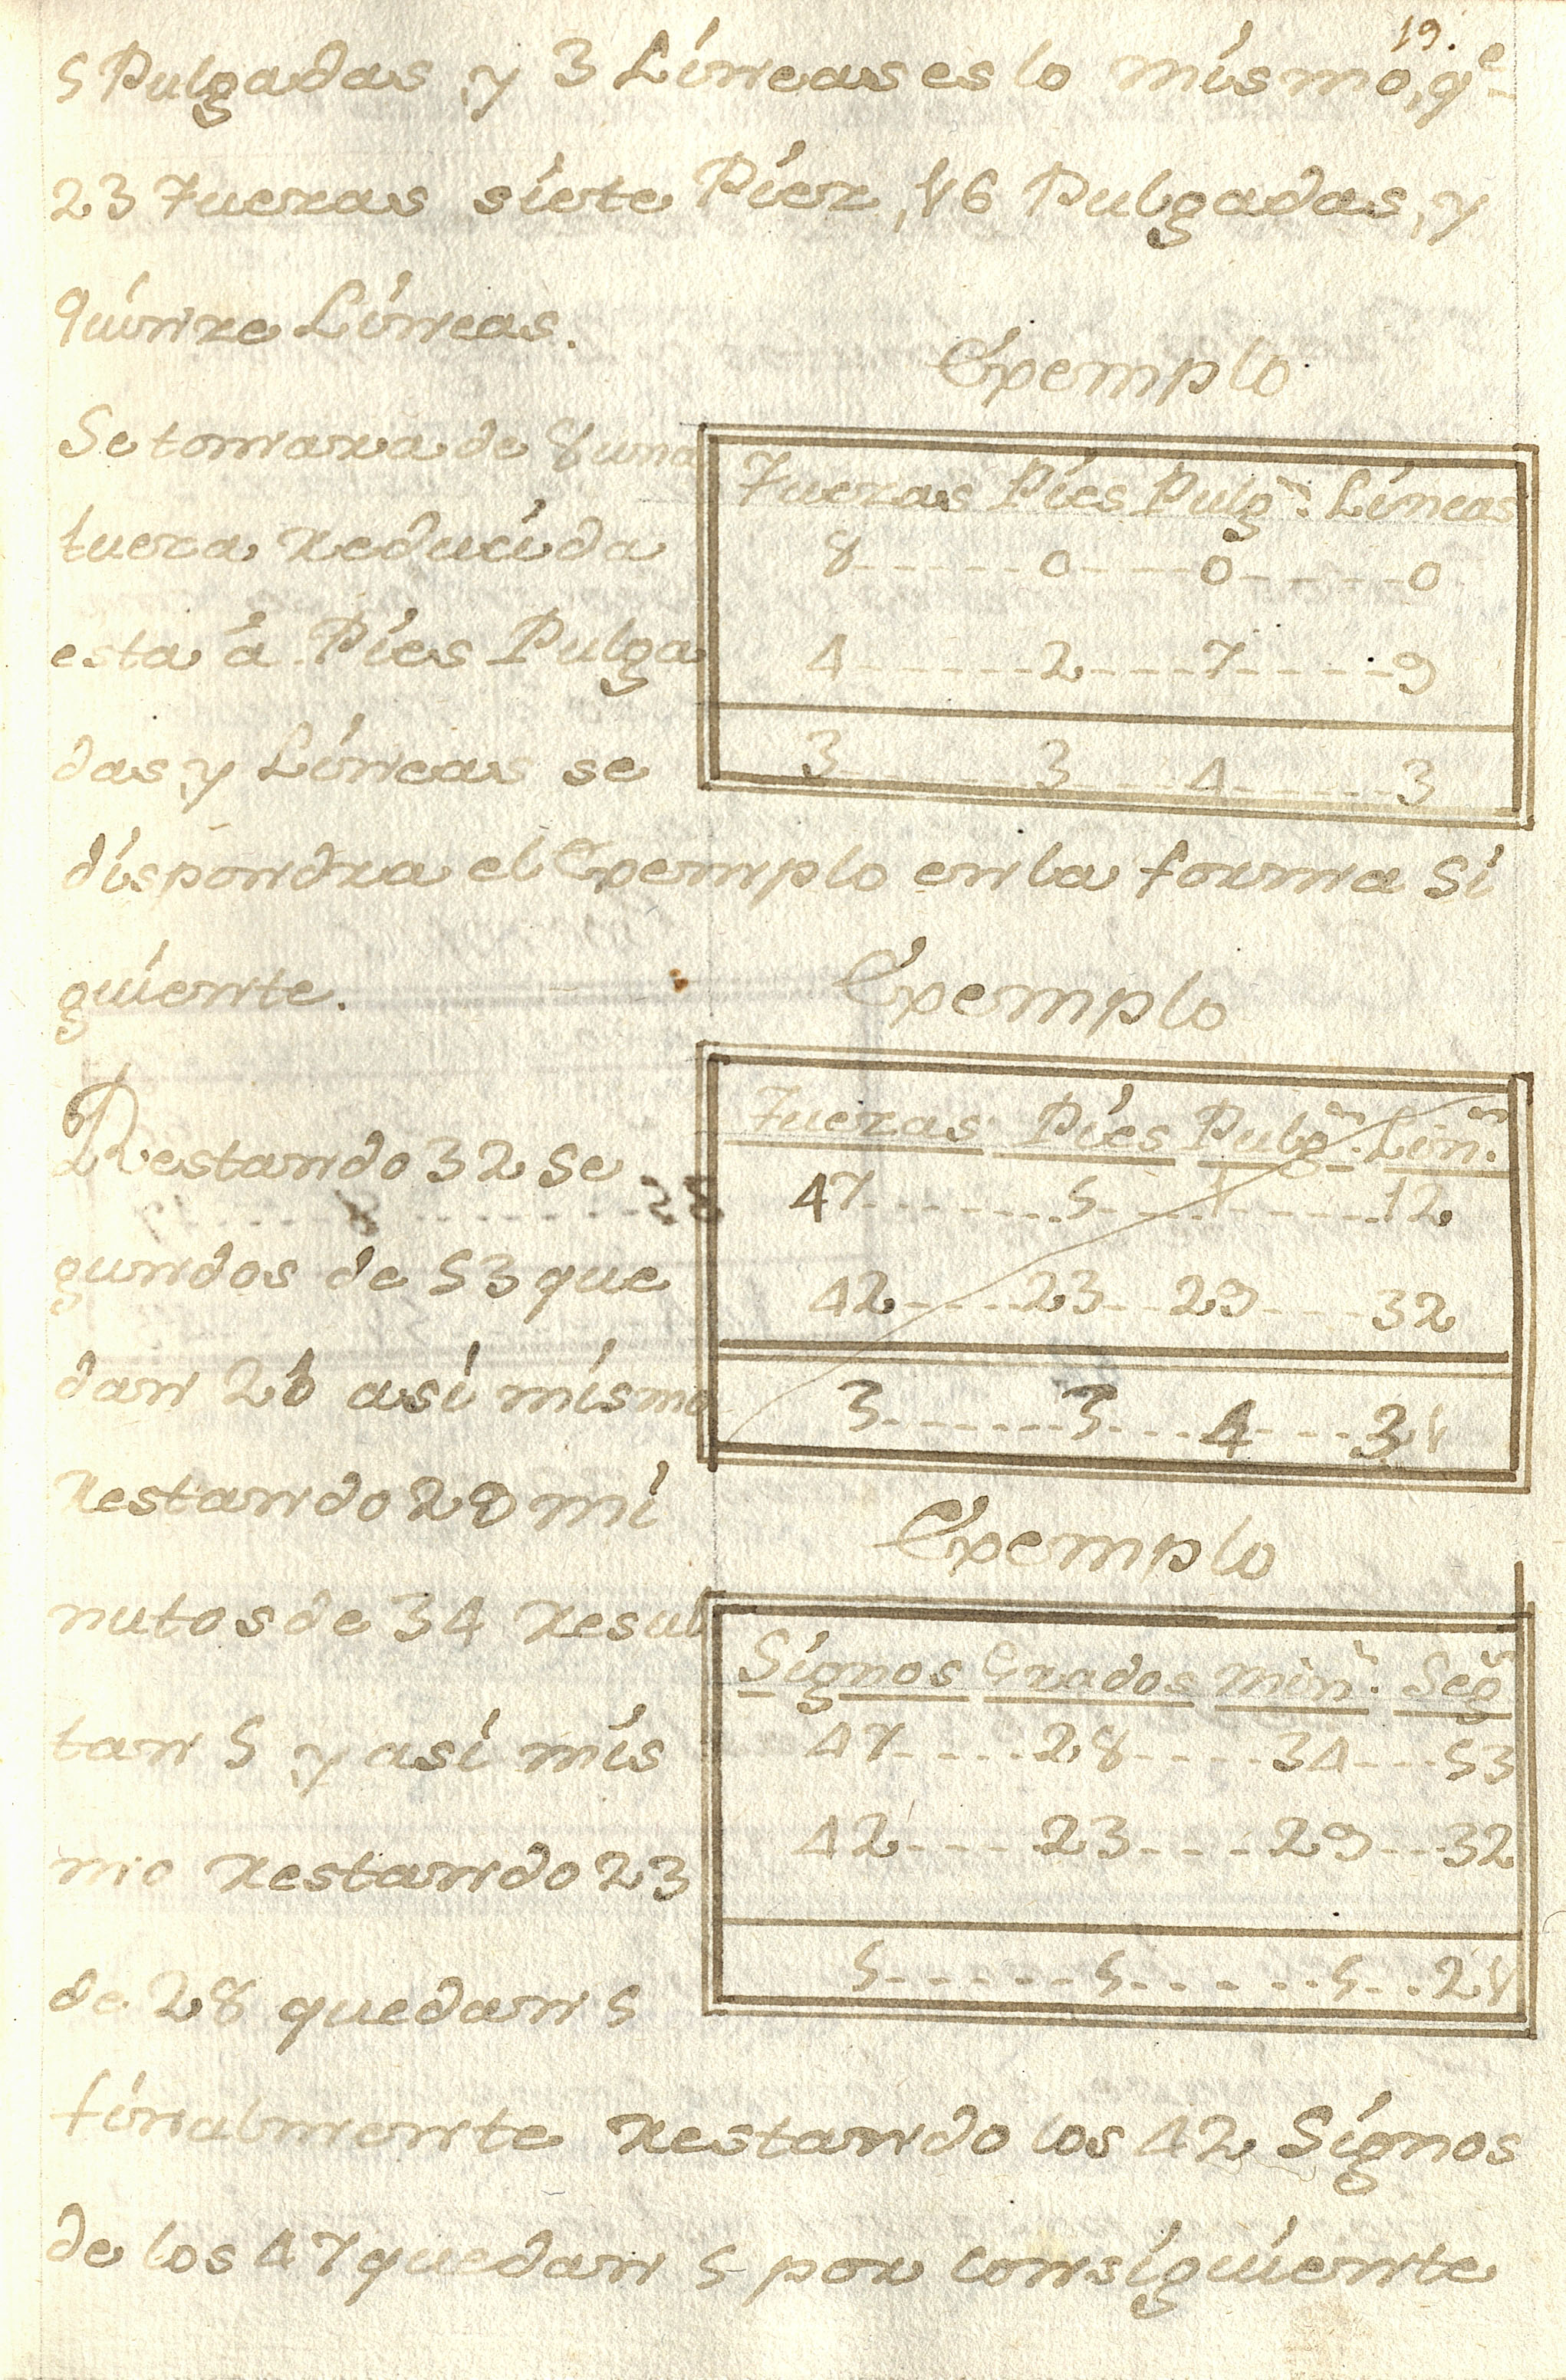 19.
5 Pulgadas, y 3 Líneas es lo mismo, q.e
23 Tuezas siete Piez, 16 Pulgadas, y
quinze Líneas.
Exemplo
Se tomara de 8 una
tueza reducida
esta á Píes Pulga
das y Líneas se
Tuezas Píes Pulg.s Líneas
8 - - - - - 0 - - - - 0 - - - - - 0
4 - - - - - - 2 - - - - 7 - - - - - 9
3 - - - - - - 3 - - - - 4 - - - - - 3
dispondra el Exemplo en la forma si
guiente.
Exemplo
Restando 32 se
gundos de 53 que
dan 21 asi mismo
restando 29 mi
Tuezas Píes Pulg.s Lin.s
47 - - - - - - 5 - - - - 1 - - - - - 12
42 - - - - 23 - - 29 - - - - 32
3 - - - - - - 3 - - - 4 - - - 31
Exemplo
nutos de 34 resul
tan 5 y asi mis
mo restando 23
de 28 quedan 5
Signos Grados min.s Seg.s
47 - - - - 28 - - - - 34 - - - 53
42 - - - 23 - - - - 29 - - - 32
5 - - - - - - 5 - - - - - - 5 - - 21
finalmente restando los 42 Signos
de los 47 quedan 5 por consiguiente